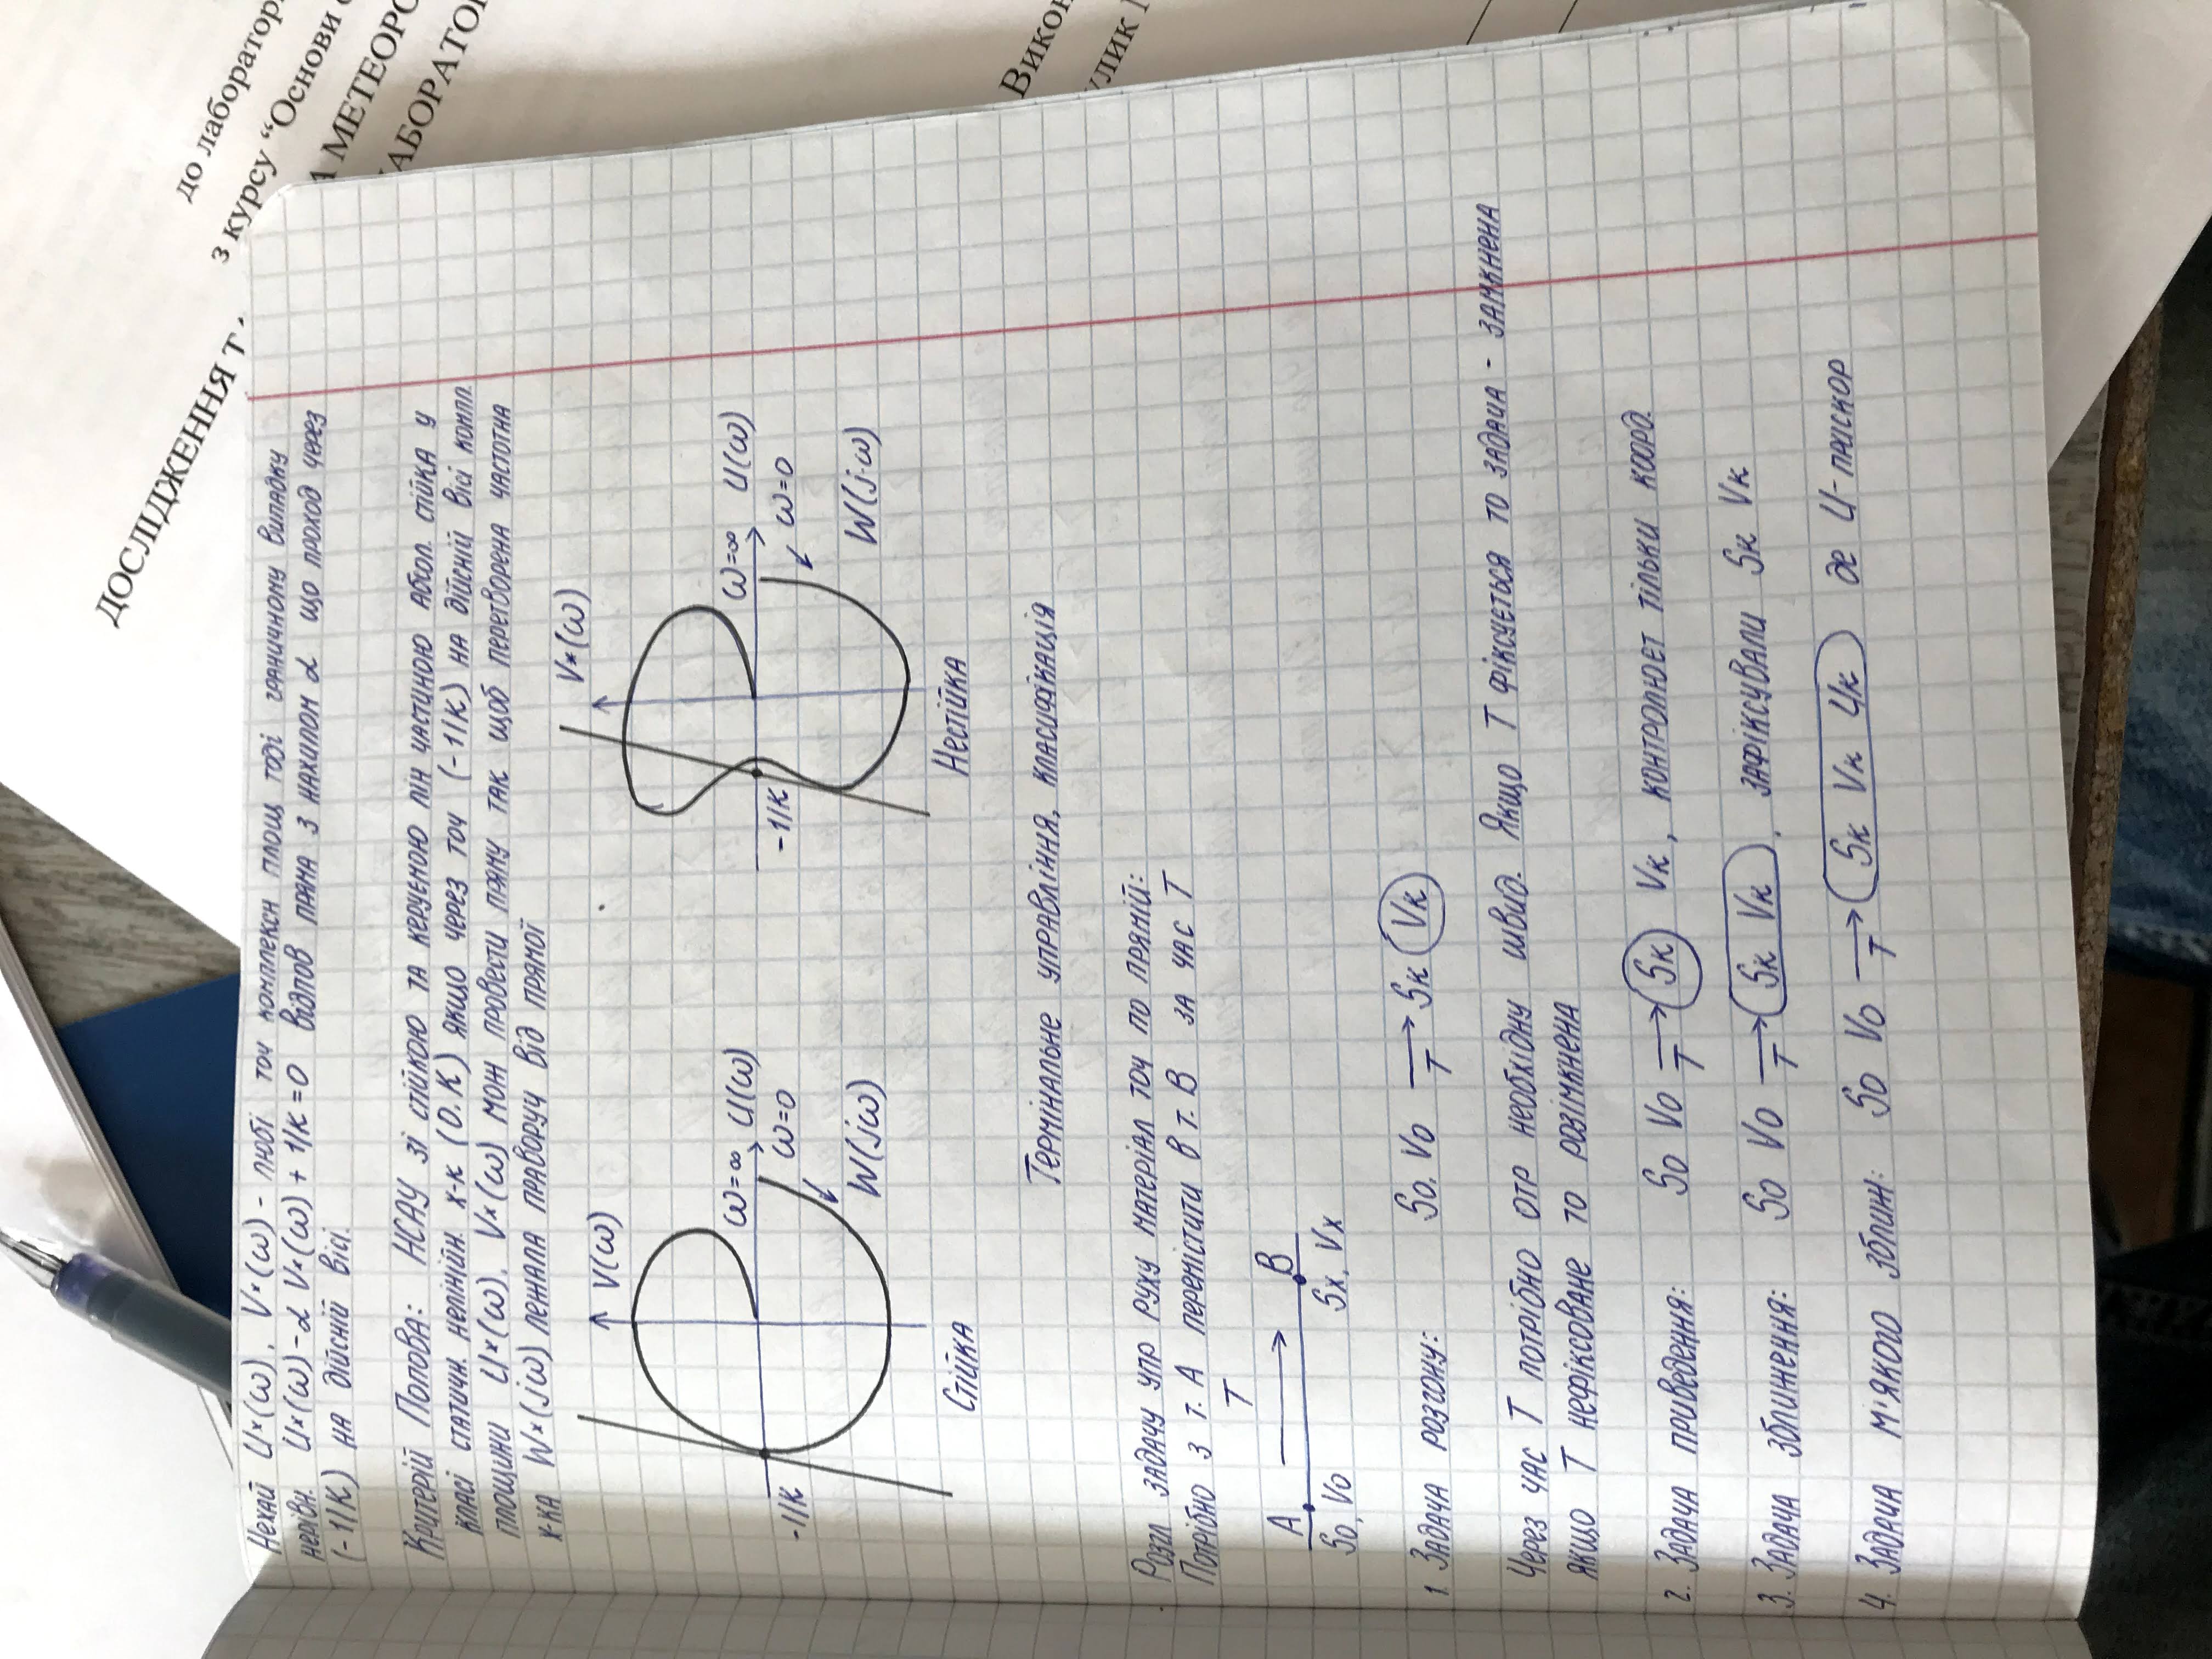 ДОСЛІДЖЕННЯ Т
до лаборатор
з курсу “Основи
МЕТЕОРО
АБОРАТО
Викон
улик
Нехай U*(ω), V*(ω) - любі точ комплексн площ тоді граничному випадку
нерівн. U*(ω) - α V*(ω) + 1/K = 0 відпов пряма з нахилом α що проход через
(-1/K) на дійсній вісі.
Критерій Попова: НСАУ зі стійкою та керуємою лін частиною абсол. стійка у
класі статичн. нелінійн. х-к (0.K) якщо через точ (-1/K) на дійсній вісі компл.
площини U*(ω), V*(ω) мож провести пряму так щоб перетворена частотна
х-ка W*(jω) лежала праворуч від прямої
V(ω)
ω=∞ U(ω)
-1/K
ω=0
W(jω)
Стійка
V*(ω)
ω=∞ U(ω)
-1/K
ω=0
W(j·ω)
Нестійка
Термінальне управління, класифікація
Розгл задачу упр руху матеріал точ по прямій:
Потрібно з т. А перемістити в т. В за час Т
T
A B
So, Vo Sx, Vx
1. Задача розгону: So, Vo → T Sк Vк
Через час Т потрібно отр необхідну швид. Якщо Т фіксується то задача - замкнена
якщо Т нефіксоване то розімкнена
2. Задача приведення: So Vo → T Sк Vк, контролюєт тільки коорд.
3. Задача зближення: So Vo → T Sк Vк, зафіксували Sк Vк
4. Задача м'якого зближ: So Vo → T Sк Vк Uк де U - прискор